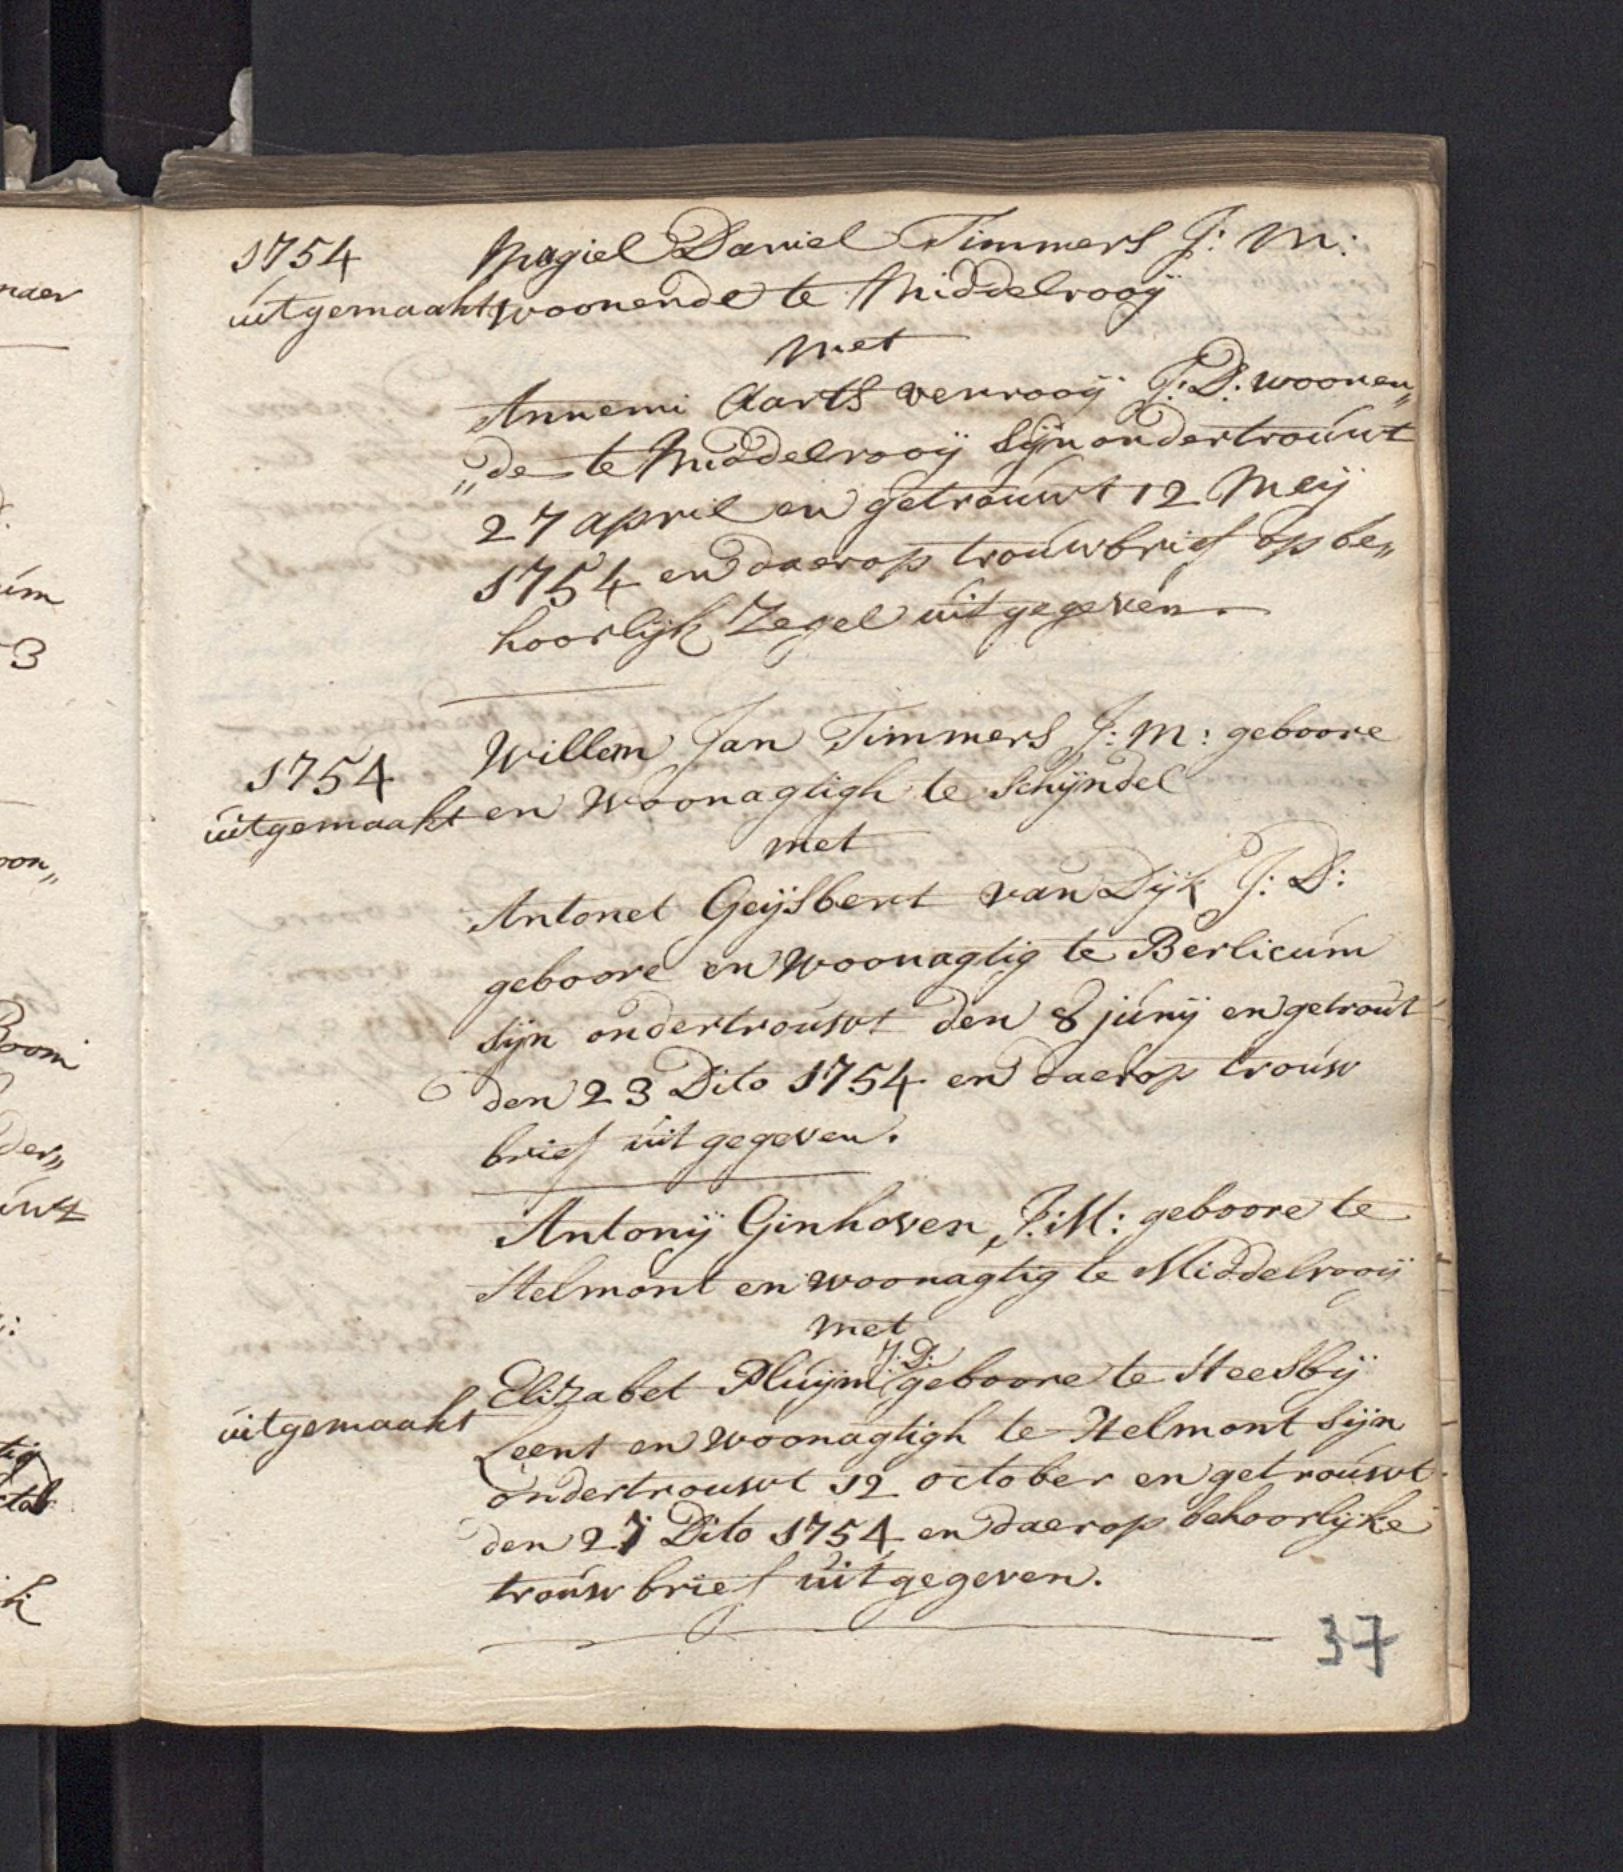 1754
uitgemaakt
Magiel Daniel Timmers J: M:
woonende te Middelrooij
met
Annemi Aarts verrooij J: D: woonen„
„de te Middelrooij Sijn ondertrouwt
27 april en getrouwt 12 Meij
1754 en daerop trouwbrief op be„
hoorlijk Zegel uitgegeven.
1754
uitgemaakt
Willem Jan Timmers J: M: geboore
en woonagtigh te Schijndel
met
Antonet Geijsbert van Dijk J: D:
geboore en woonagtig te Berlicum
sijn ondertrouwt den 8 junij en getrout
den 23 Dito 1754 en daerop trouw
brief uit gegeven.
Antonij Ginhoven J: M: geboore te
Helmont en woonagtig te Middelrooij
met
Elizabet Pluijm J: D: geboore te Heesbij
uitgemaakt
Leent en woonagtigh te Helmont sijn
ondertrouwt 12 october en getrouwt
den 27 Dito 1754 en daerop behoorlijke
trouw brief uitgegeven.
37
naer
um
3
oon„
Boom
der„
uwt
tig